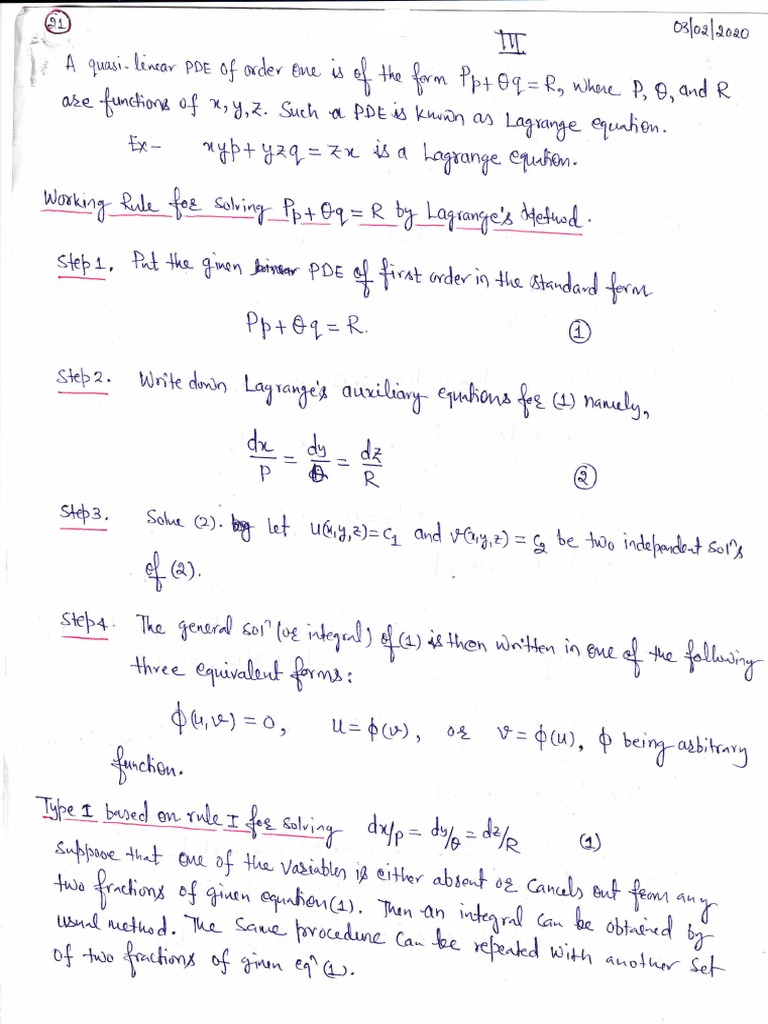 21
03/02/2020
III
A quasi-linear PDE of order one is of the form Pp+Qq=R, where P, Q, and R
are functions of x, y, z. Such a PDE is known as Lagrange equation.
Ex- xyp+yzq=zx is a Lagrange equation.
Working Rule for solving Pp+Qq=R by Lagrange's Method.
Step 1. Put the given linear PDE of first order in the standard form
Pp+Qq=R. (1)
Step 2. Write down Lagrange's auxiliary equations for (1) namely,
dx/P = dy/Q = dz/R (2)
Step 3. Solve (2). by let u(x,y,z)=c₁ and v(x,y,z)=c₂ be two independent solⁿs
of (2).
Step 4. The general solⁿ (or integral) of (1) is then written in one of the following
three equivalent forms:
ϕ(u,v)=0, u=ϕ(v), or v=ϕ(u), ϕ being arbitrary
function.
Type I based on rule I for solving dx/P = dy/Q = dz/R (1)
Suppose that one of the variables is either absent or cancels out from any
two fractions of given equation(1). Then an integral can be obtained by
usual method. The same procedure can be repeated with another set
of two fractions of given eqⁿ (1).